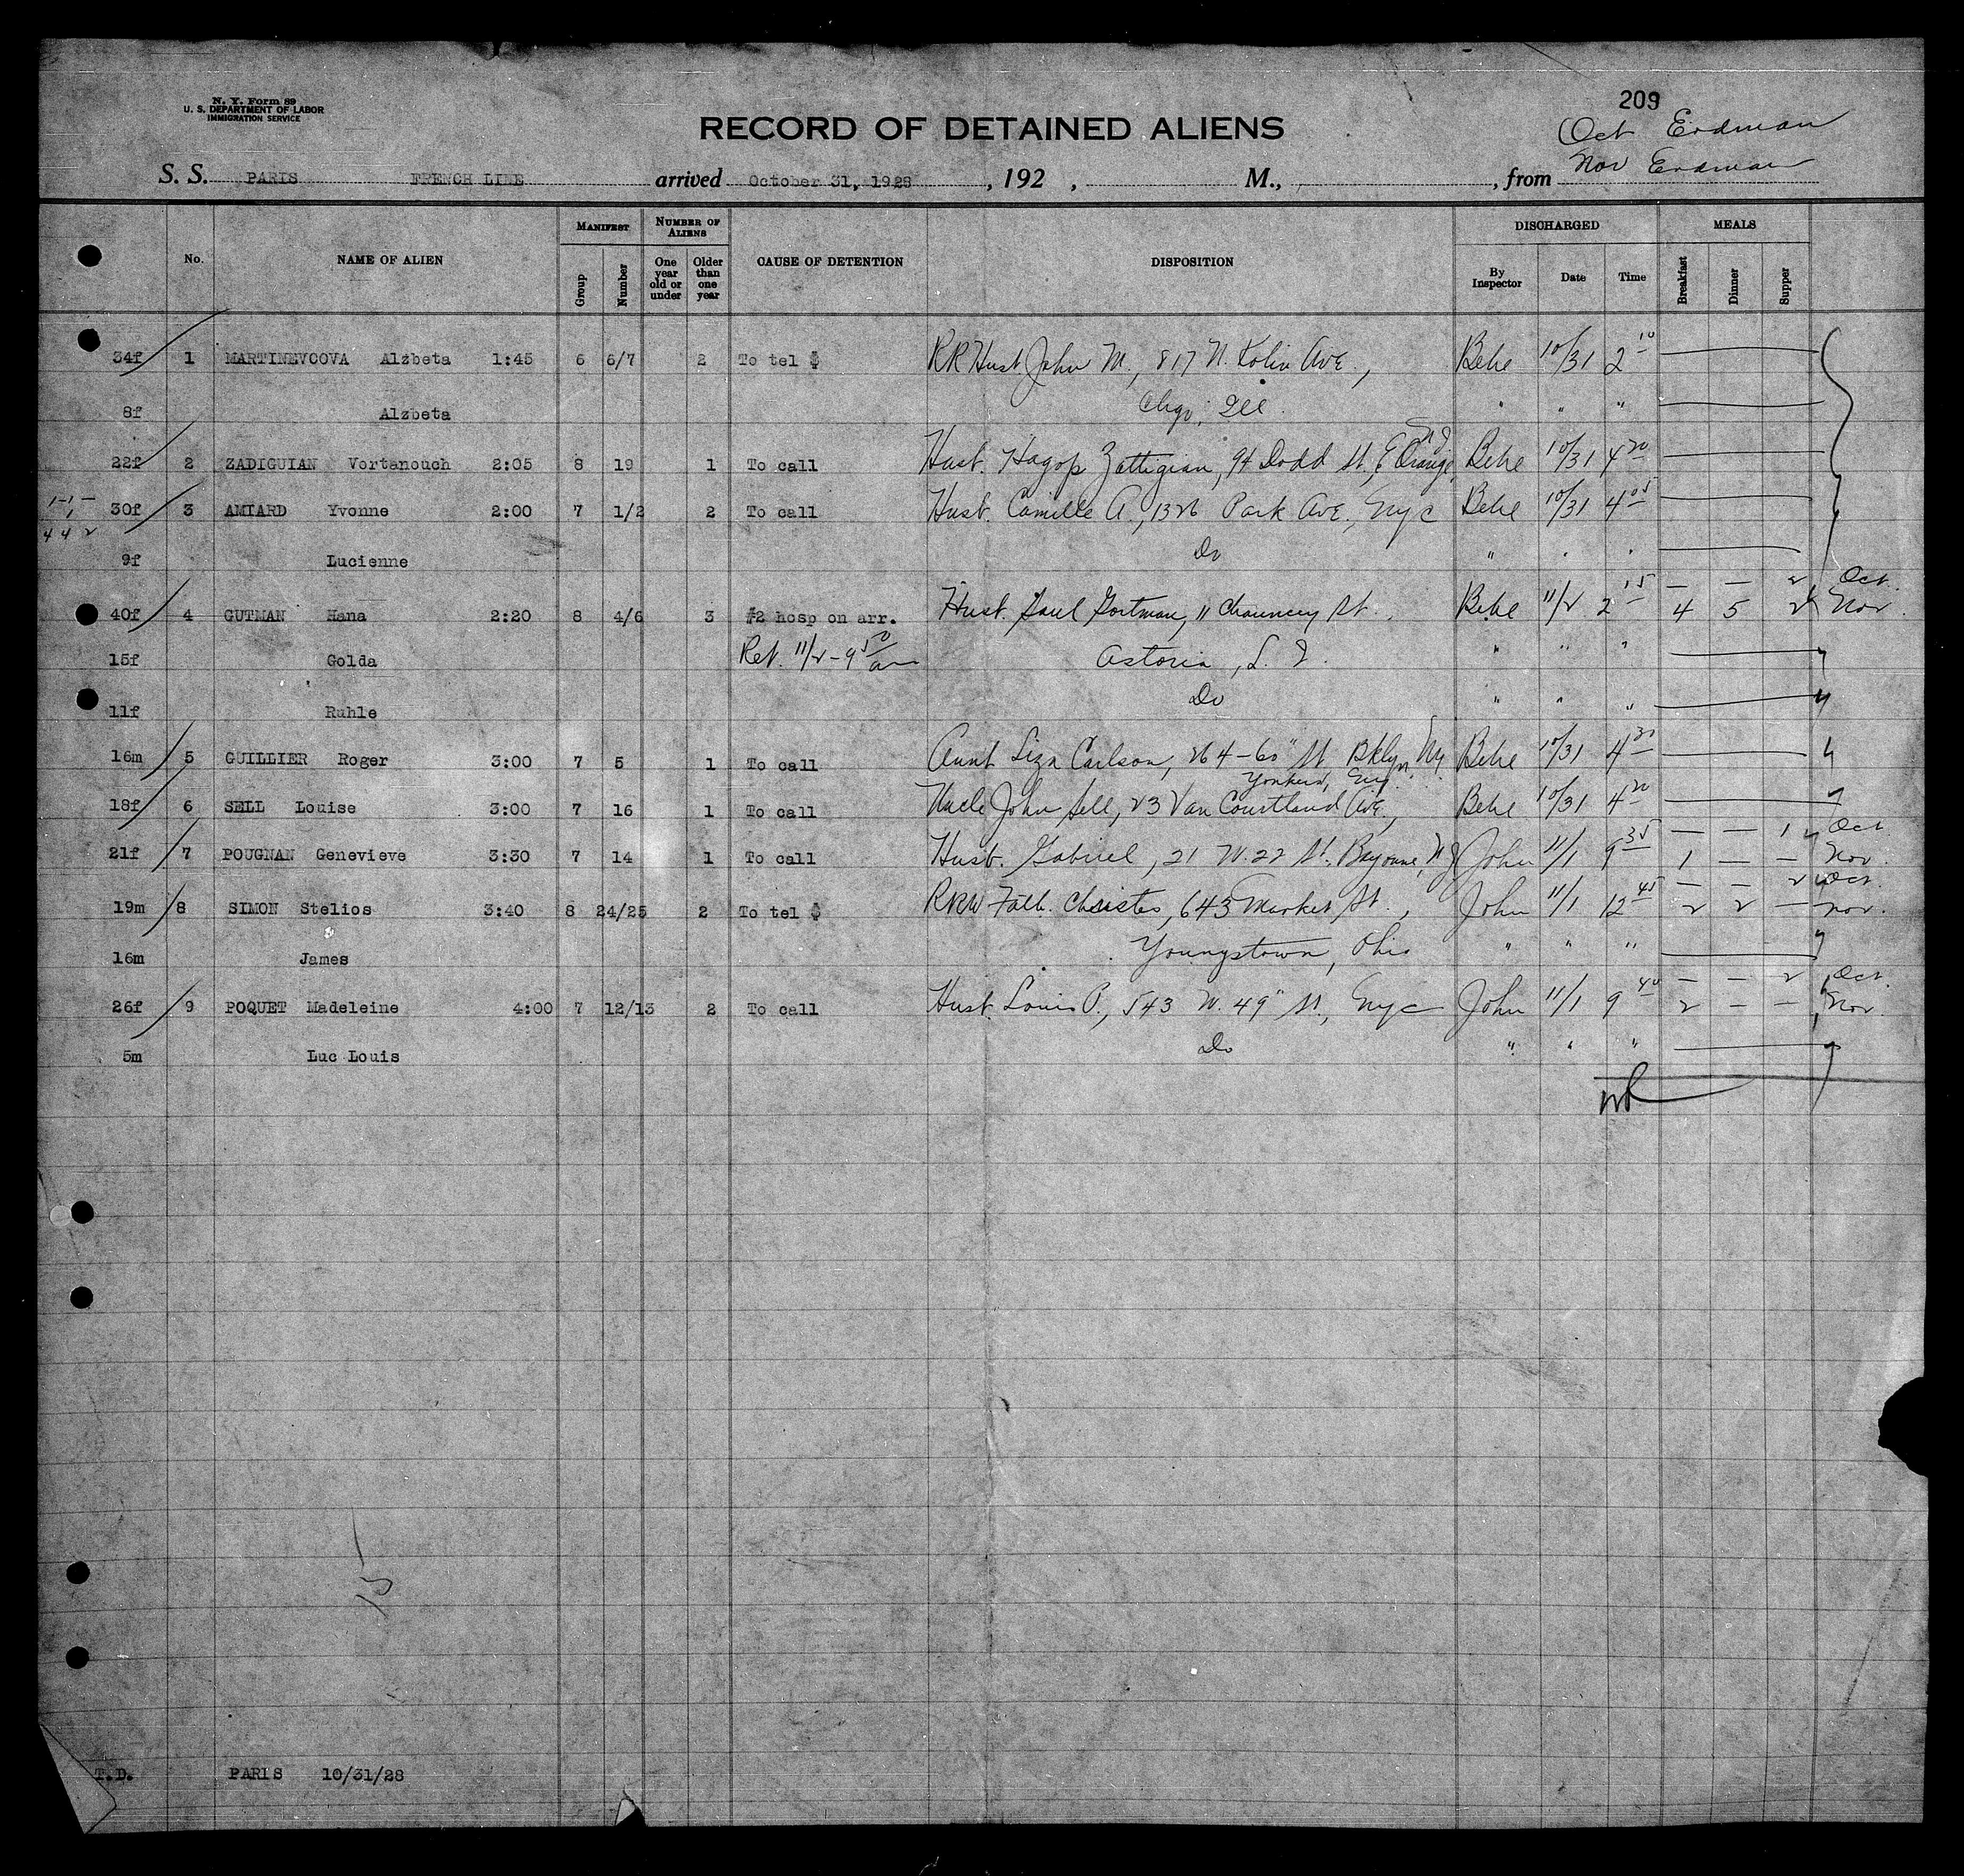 N. Y. Form 89
U. S. DEPARTMENT OF LABOR
IMMIGRATION SERVICE
209
RECORD OF DETAINED ALIENS
Oct Erdman
Nov Erdman
S. S. PARIS FRENCH LINE arrived October 31, 1928, 192 , M., , from
No. NAME OF ALIEN MANIFEST Group Number NUMBER OF ALIENS One year old or under Older than one year CAUSE OF DETENTION DISPOSITION DISCHARGED By Inspector Date Time MEALS Breakfast Dinner Supper
34f 1 MARTINEVCOVA Alzbeta 1:45 6 6/7 2 To tel $ RR Hust John M., 817 N. Kolin Ave., Behe 10/31 2 10
8f Alzbeta Chgo, Ill. " " "
22f 2 ZADIGUIAN Vortanouch 2:05 8 19 1 To call Hust. Hagop Zattigian, 94 Dodd St., E Orange, NJ Behe 10/31 4 20
30f 3 AMIARD Yvonne 2:00 7 1/2 2 To call Husb. Camille A., 1326 Park Ave., Nyc Behe 10/31 4 05
9f Lucienne Do " " "
40f 4 GUTMAN Hana 2:20 8 4/6 3 #2 hosp on arr. Hust. Saul Gortman, 11 Chauncey St. Behe 11/2 2 15 — — 2 Oct
4 5 2 Nov
15f Golda Ret. 11/2 - 9 50 am Astoria, L. I. " " "
11f Ruhle Do " " "
16m 5 GUILLIER Roger 3:00 7 5 1 To call Aunt Liza Carlson, 264-60" St Bklyn Ny Behe 10/31 4 30
18f 6 SELL Louise 3:00 7 16 1 To call Uncle John Sell, 23 Van Courtland Ave., Yonkers, Ny Behe 10/31 4 20
21f 7 POUGNAN Genevieve 3:30 7 14 1 To call Husb. Gabriel, 21 W. 22 St. Bayonne, NJ John 11/1 9 35 — — 1 Oct
1 — — Nov.
19m 8 SIMON Stelios 3:40 8 24/25 2 To tel $ RRW Fath. Christos, 643 Market St., John 11/1 12 45 — — 2 Oct.
2 2 — Nov.
16m James Youngstown, Ohio " " "
26f 9 POQUET Madeleine 4:00 7 12/13 2 To call Hust. Louis P., 543 W. 49" St., Nyc John 11/1 9 40 — — 2 Oct.
2 — — Nov.
5m Luc Louis Do " " "
15
T.D. PARIS 10/31/28